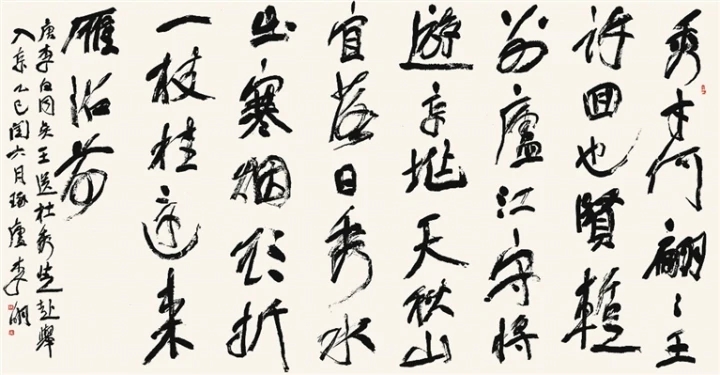 秀才何翩〻王
許回也賢暫
别廬江守将
遊京兆天秋山
宜落日秀水
出寒烟欲折
一枝桂還来
雁沼前
唐李白同吴王送杜秀芝赴舉
入京乙巳閏六月廬李